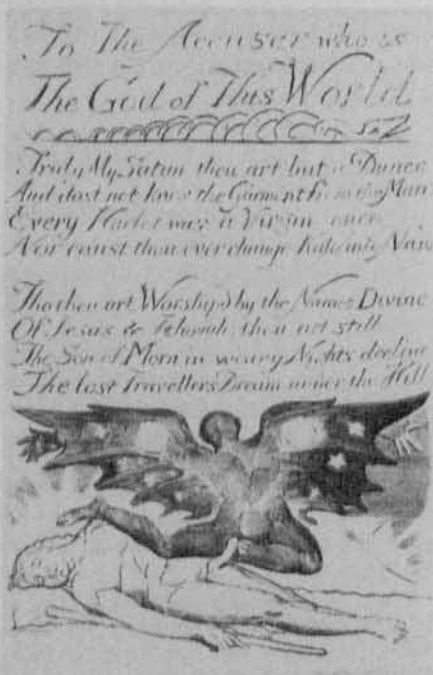 To The Accuser who is
The God of This World
Truly My Satan thou art but a Dunce
And dost not know the Garment from the Man
Every Harlot was a Virgin once
Nor canst thou ever change Kate into Nan
Tho thou art Worshipd by the Names Divine
Of Jesus & Jehovah thou art still
The Son of Morn in weary Nights decline
The lost Travellers Dream under the Hill